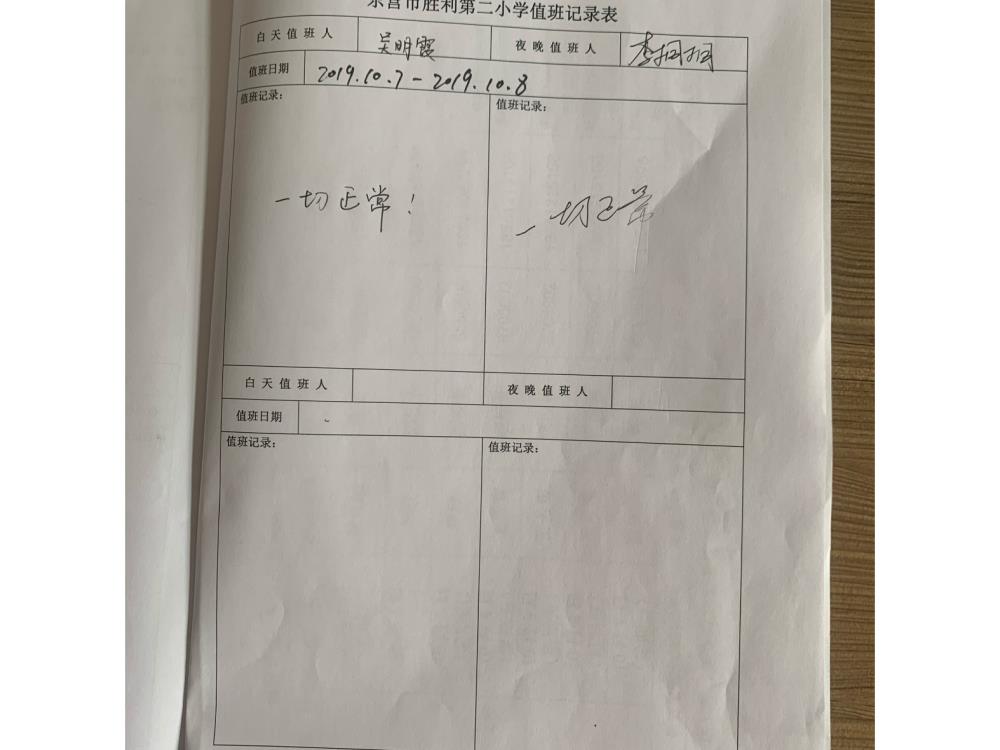 东营市胜利第二小学值班记录表
白天值班人 吴明霞 夜晚值班人
值班日期 2019.10.7-2019.10.8
值班记录: 值班记录:
一切正常! 一切正常
白天值班人 夜晚值班人
值班日期
值班记录: 值班记录: